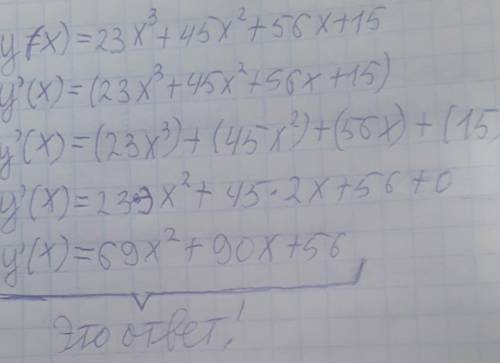 y(x)=23x³+45x²+56x+15
y'(x)=(23x³+45x²+56x+15)
y'(x)=(23x³)+(45x²)+(56x)+(15
y'(x)=23·3x²+45·2x+56+0
y'(x)=69x²+90x+56
Это ответ!